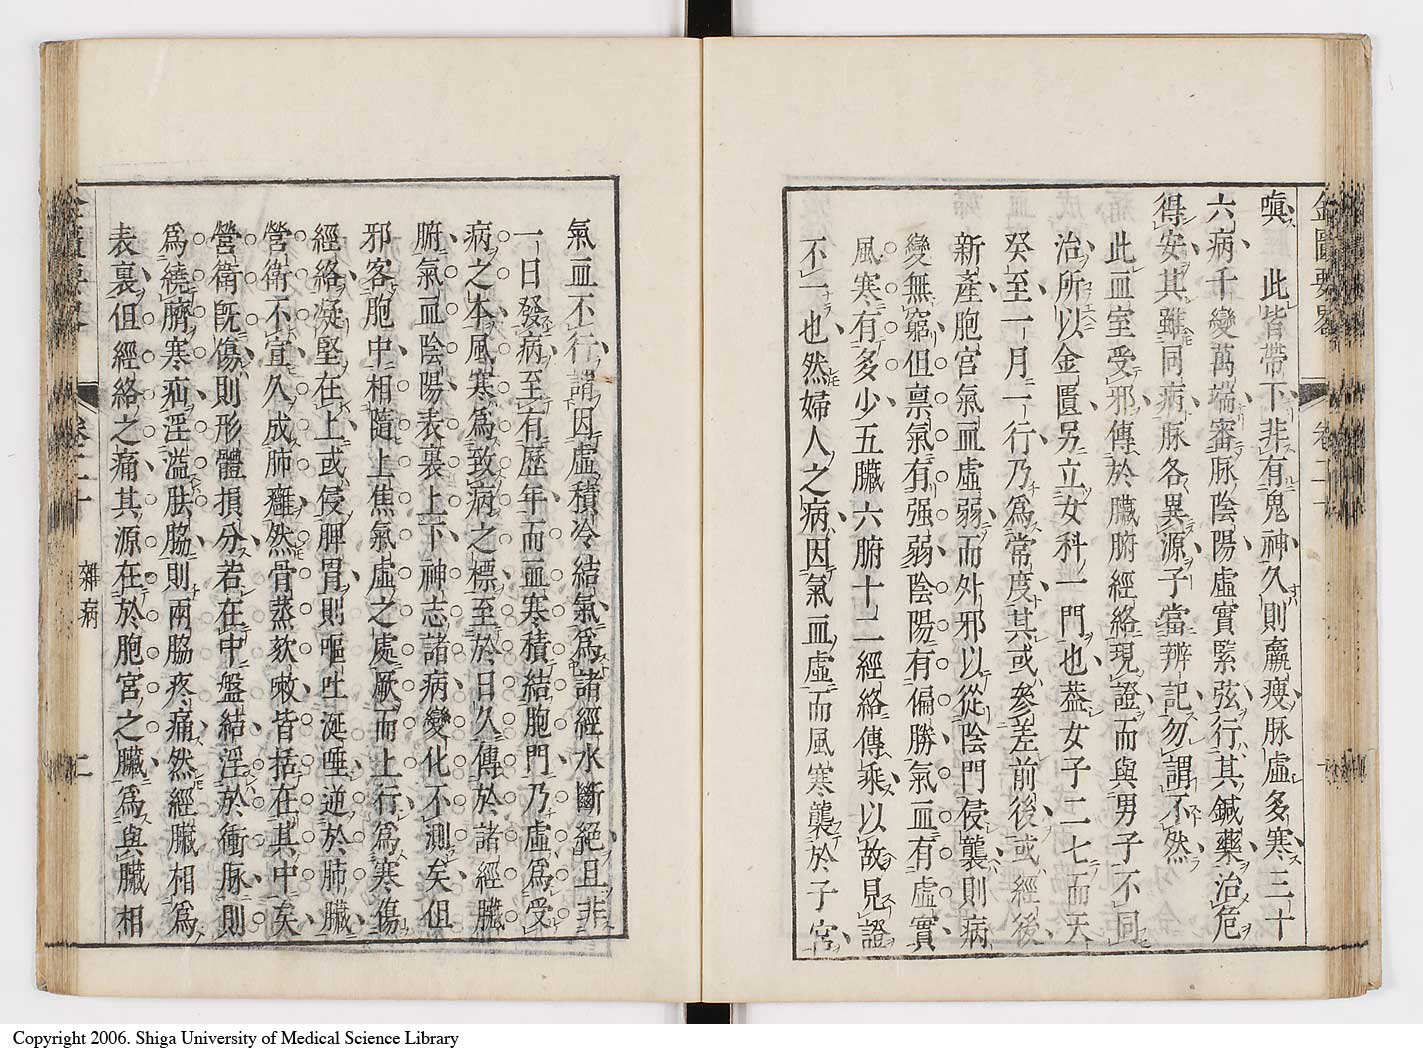 嗔 此皆帶下非有鬼神久則羸瘦脉虛多寒三十
六病千變萬端審脉陰陽虛實緊弦行其鍼藥治危
得安其雖同病脉各異源子當辨記勿謂不然
此血室受邪傳於臟腑經絡現證而與男子不同
治所以金匱另立女科一門也葢女子二七而天
癸至一月一行乃爲常度其或參差前後或經後
新產胞宮氣血虛弱而外邪以從陰門侵襲則病
變無窮但禀氣有强弱陰陽有偏勝氣血有虛實
風寒有多少五臟六腑十二經絡傳乘以故見證
不一也然婦人之病因氣血虛而風寒襲於子宮
氣血不行謂因虛積冷結氣爲諸經水斷絕且非
一日發病至有歷年而血寒積結胞門乃虛爲受
病之本風寒爲致病之標至於日久傳於諸經臟
腑氣血陰陽表裏上下神志諸病變化不測矣但
邪客胞中相隨上焦氣虛之處厥而上行爲寒傷
經絡凝堅在上或侵脾胃則嘔吐涎唾逆於肺臟
營衛不宜久成肺癰然骨蒸欬嗽皆括在其中矣
營衛旣傷則形體損分若在中盤結淫於衝脉則
爲繞臍寒疝淫溢肤脇則兩脇疼痛然經臟相爲
表裏但經絡之痛其源在於胞宮之臟爲與臟相
雜病
二
Copyright 2006. Shiga University of Medical Science Library